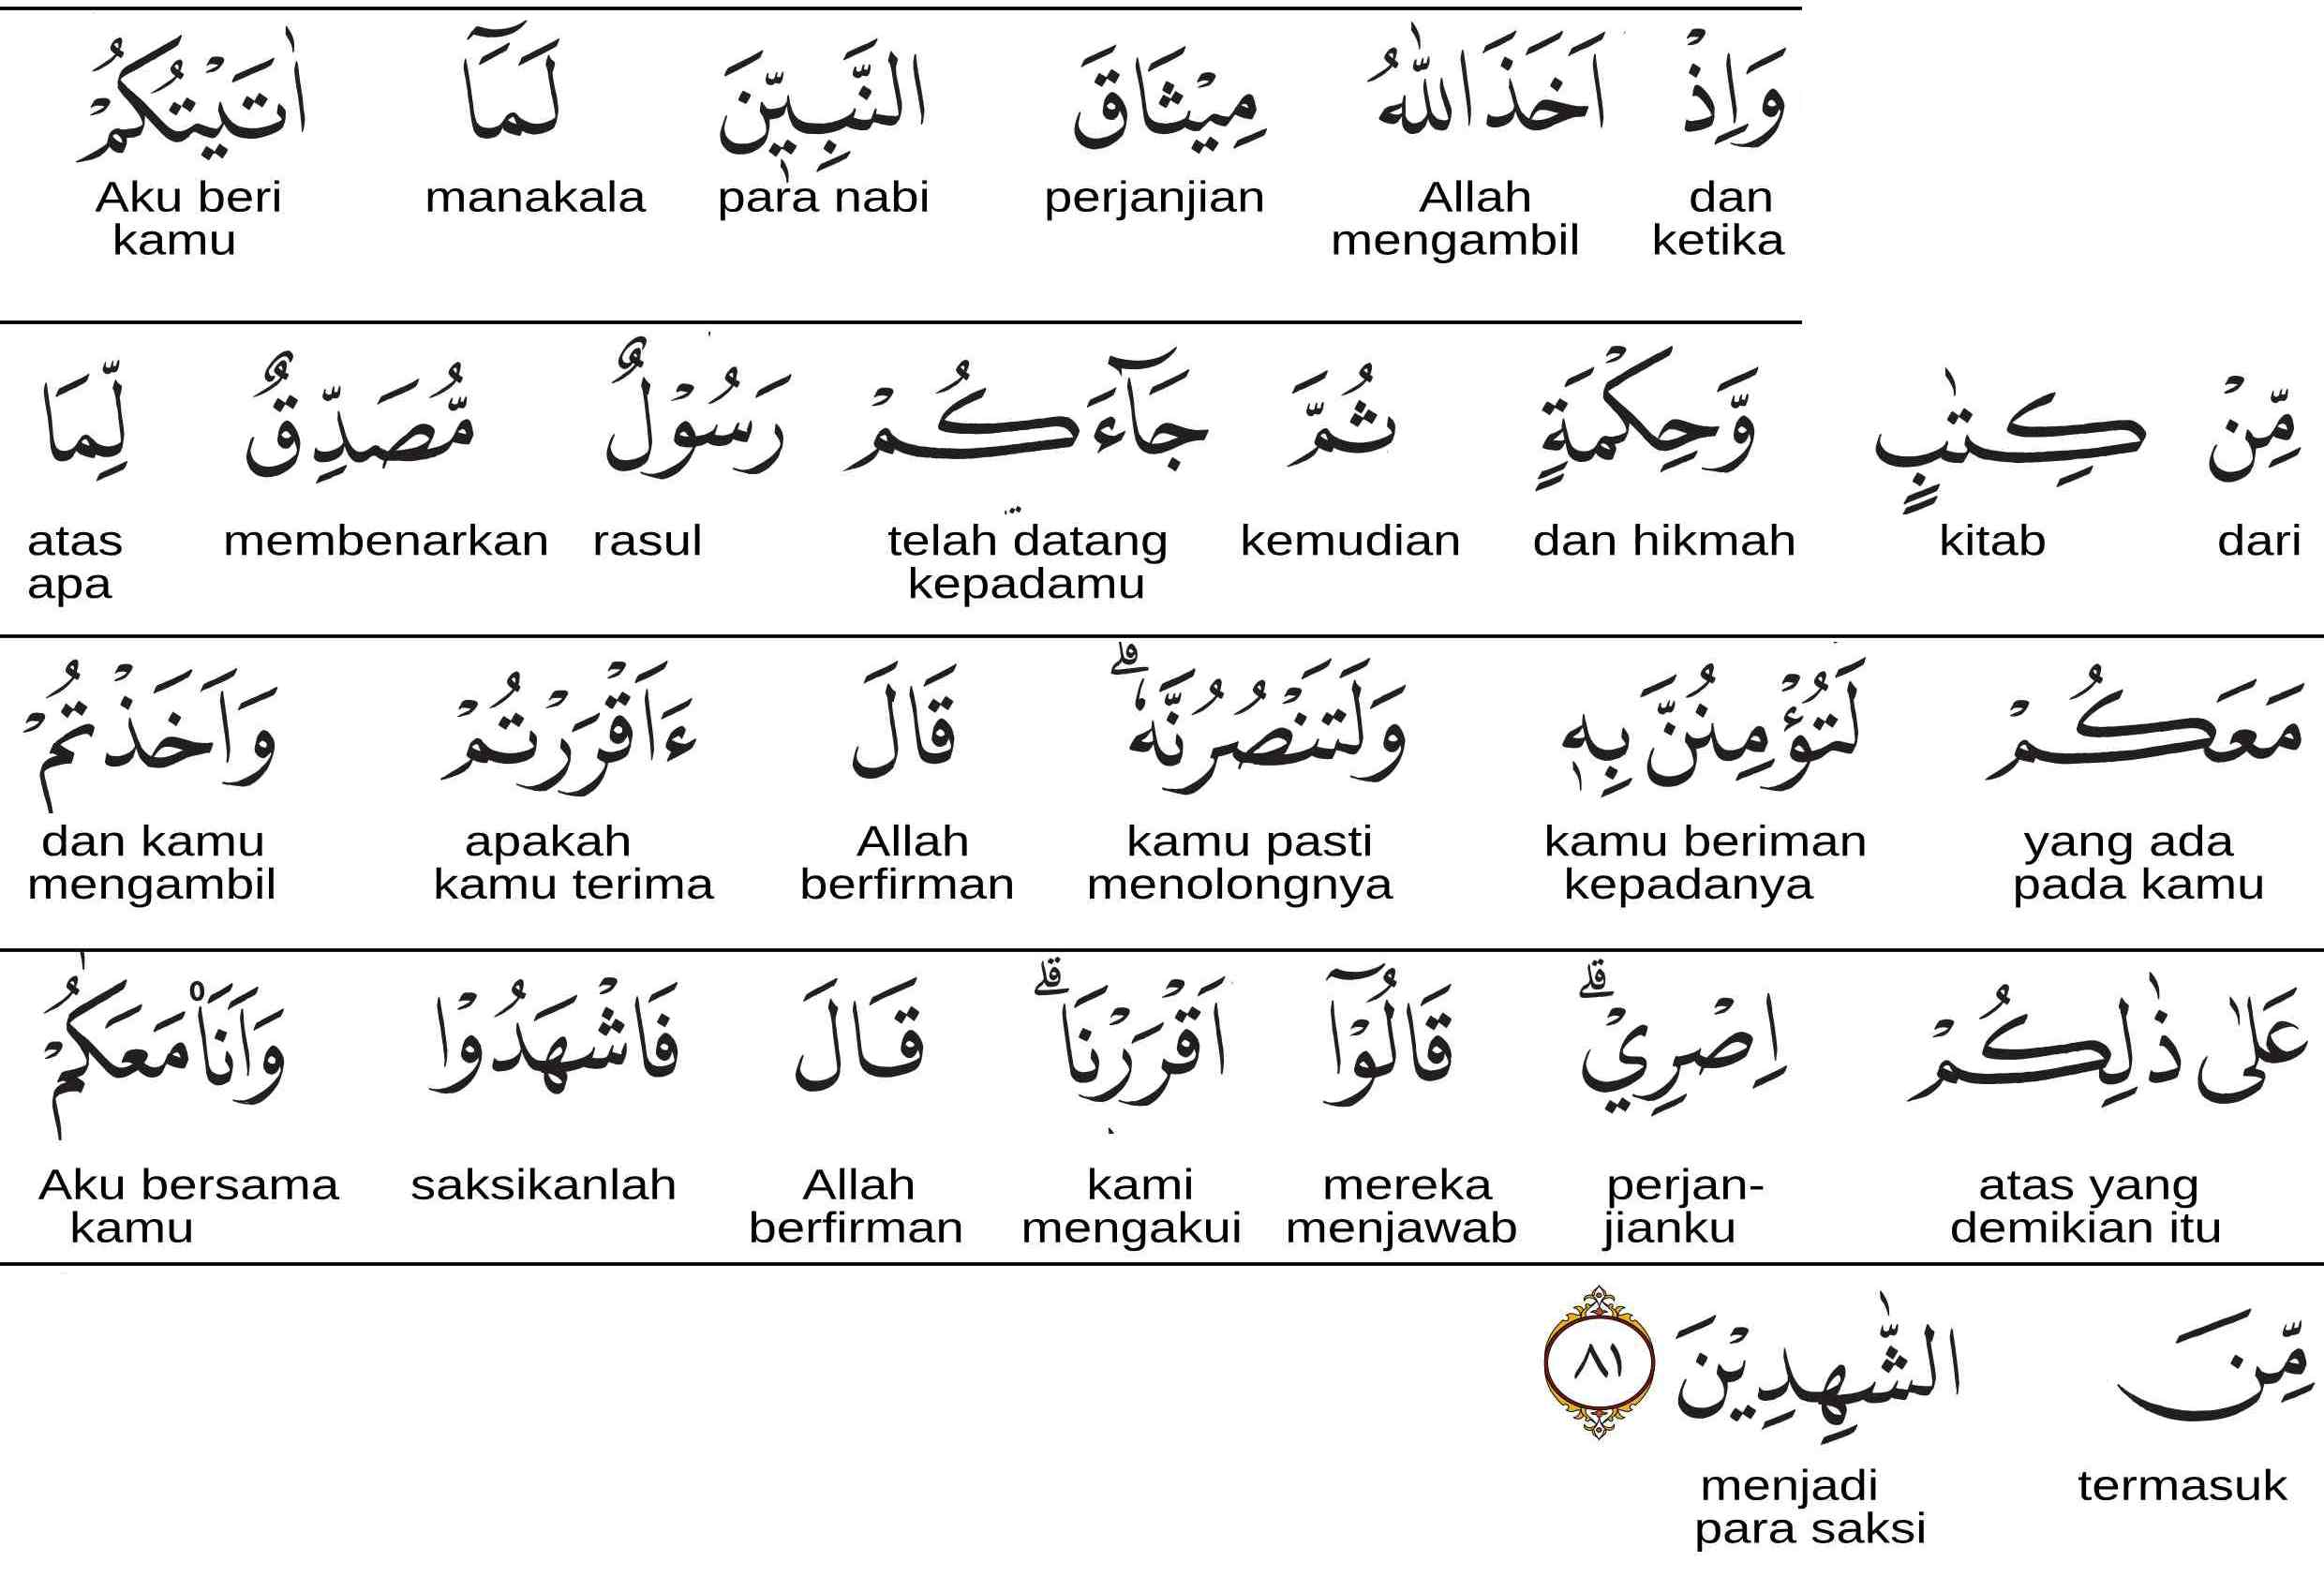 وَاِذْ اَخَذَ اللّٰهُ مِيْثَاقَ النَّبِيّٖنَ لَمَآ اٰتَيْتُكُمْ
dan Allah perjanjian para nabi manakala Aku beri
ketika mengambil kamu
مِّنْ كِتٰبٍ وَّحِكْمَةٍ ثُمَّ جَاۤءَكُمْ رَسُوْلٌ مُّصَدِّقٌ لِّمَا
dari kitab dan hikmah kemudian telah datang rasul membenarkan atas
kepadamu apa
مَعَكُمْ لَتُؤْمِنُنَّ بِهٖ وَلَتَنْصُرُنَّهٗ ۗ قَالَ ءَاَقْرَرْتُمْ وَاَخَذْتُمْ
yang ada kamu beriman kamu pasti Allah apakah dan kamu
pada kamu kepadanya menolongnya berfirman kamu terima mengambil
عَلٰى ذٰلِكُمْ اِصْرِيْ ۗ قَالُوْٓا اَقْرَرْنَا ۗ قَالَ فَاشْهَدُوْا وَاَنَا۠ مَعَكُمْ
atas yang perjan- mereka kami Allah saksikanlah Aku bersama
demikian itu jianku menjawab mengakui berfirman kamu
مِّنَ الشّٰهِدِيْنَ ٨١
termasuk menjadi
para saksi